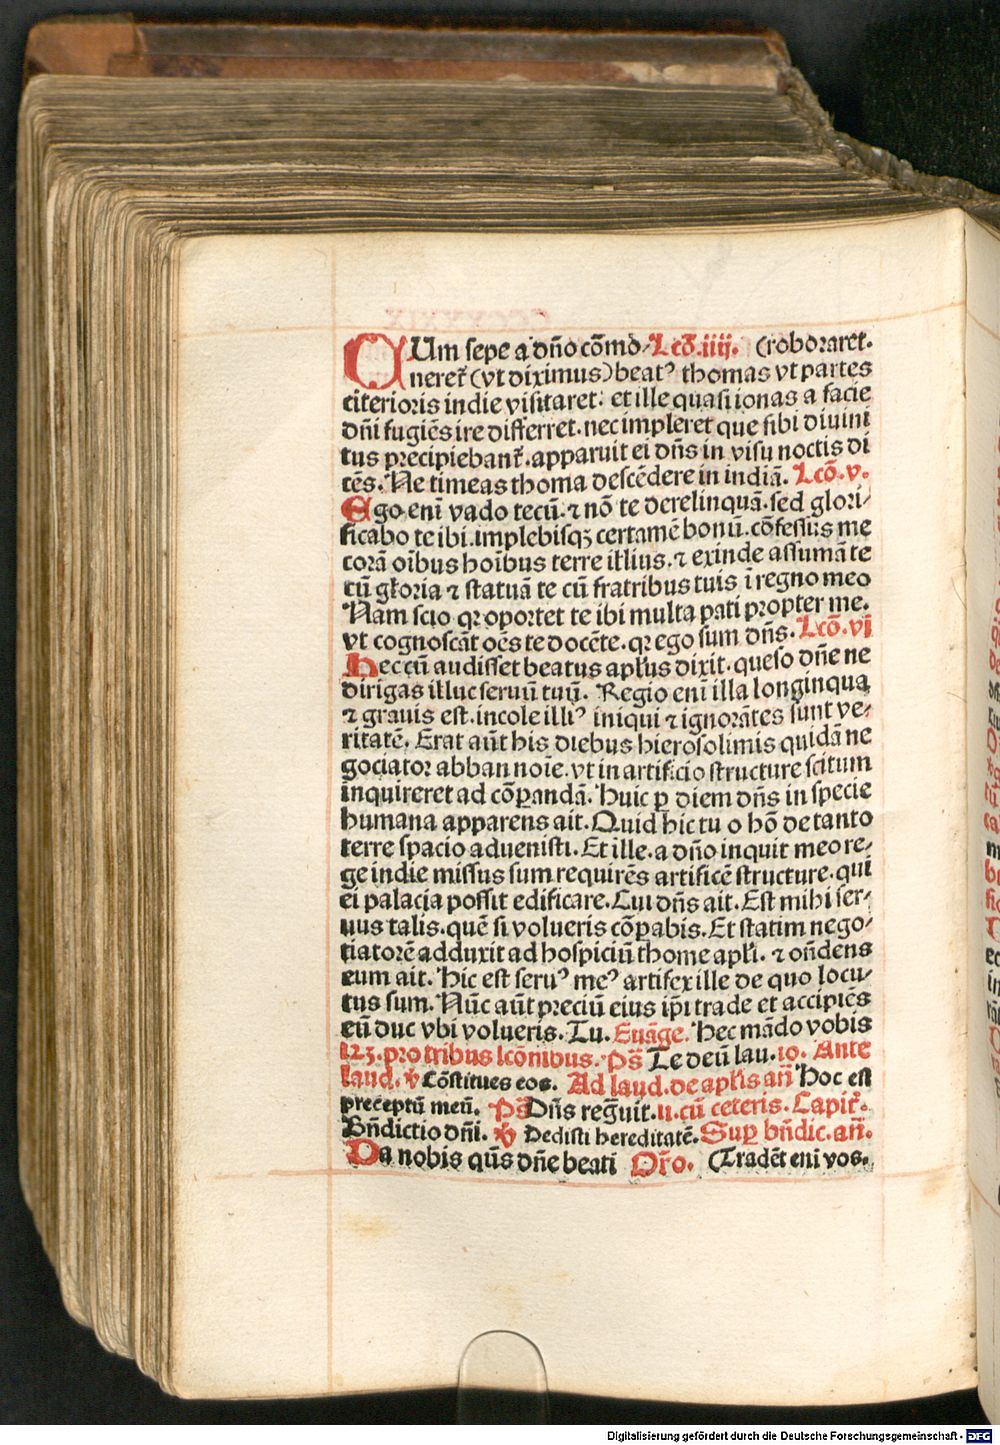 CUm sepe a dño cõmo⸗ Lcõ.iiij. (roboraret.
nereť (vt diximus) beatꝰ thomas vt partes
citerioris indie visitaret: et ille quasi ionas a facie
dñi fugiẽs ire differret. nec impleret que sibi diuini
tus precipiebanť. apparuit ei dñs in visu noctis di
cẽs. Ne timeas thoma descẽdere in indiã. Lcõ.v.
Ego eni̅ vado tecũ. ⁊ nõ te derelinquã. sed glori⸗
ficabo te ibi. implebisqꝫ certamẽ bonũ. cõfessus me
corã oi̅bus hoi̅bus terre illius. ⁊ exinde assumã te
cũ gl̃oria ⁊ statuã te cũ fratribus tuis i̅ regno meo
Nam scio qꝛ oportet te ibi multa pati propter me.
vt cognoscãt oẽs te docẽte. qꝛ ego sum dñs. Lcõ.vj
Hec cũ audisset beatus apl̃us dixit. queso dñe ne
dirigas illuc seruũ tuũ. Regio eni̅ illa longinqua
⁊ grauis est. incole illiꝰ iniqui ⁊ ignorãtes sunt ve⸗
ritatẽ. Erat aũt his diebus hierosolimis quidã ne
gociator abban noi̅e. vt in artificio structure scitum
inquireret ad cõparandã. Huic ꝑ diem dñs in specie
humana apparens ait. Quid hic tu o hõ de tanto
terre spacio aduenisti. Et ille. a dño inquit meo re⸗
ge indie missus sum requirẽs artificẽ structure. qui
ei palacia possit edificare. Cui dñs ait. Est mihi ser⸗
uus talis. quẽ si volueris cõparabis. Et statim nego⸗
tiatorẽ adduxit ad hospiciũ thome apl̃i. ⁊ oñdens
eum ait. Hic est seruꝰ meꝰ artifex ille de quo locu⸗
tus sum. Nũc aũt preciũ eius ip̃i trade et accipiẽs
eũ duc vbi volueris. Tu. Euãge. Hec mãdo vobis
123. pro tribus lcõnibus. Ps̃ Te deũ lau. 10. Ante
laud. ℣ Cõstitues eos. Ad laud. de apl̃is añ Hoc est
preceptũ meũ. Ps̃ Dñs reg̃uit. 11. cũ ceteris. Capiť.
Bñdictio dñi. ℣ Dedisti hereditatẽ. Suꝑ bñdic. añ.
Da nobis qũs dñe beati Or̃o. (Tradẽt eni̅ vos.
Digitalisierung gefördert durch die Deutsche Forschungsgemeinschaft - DFG